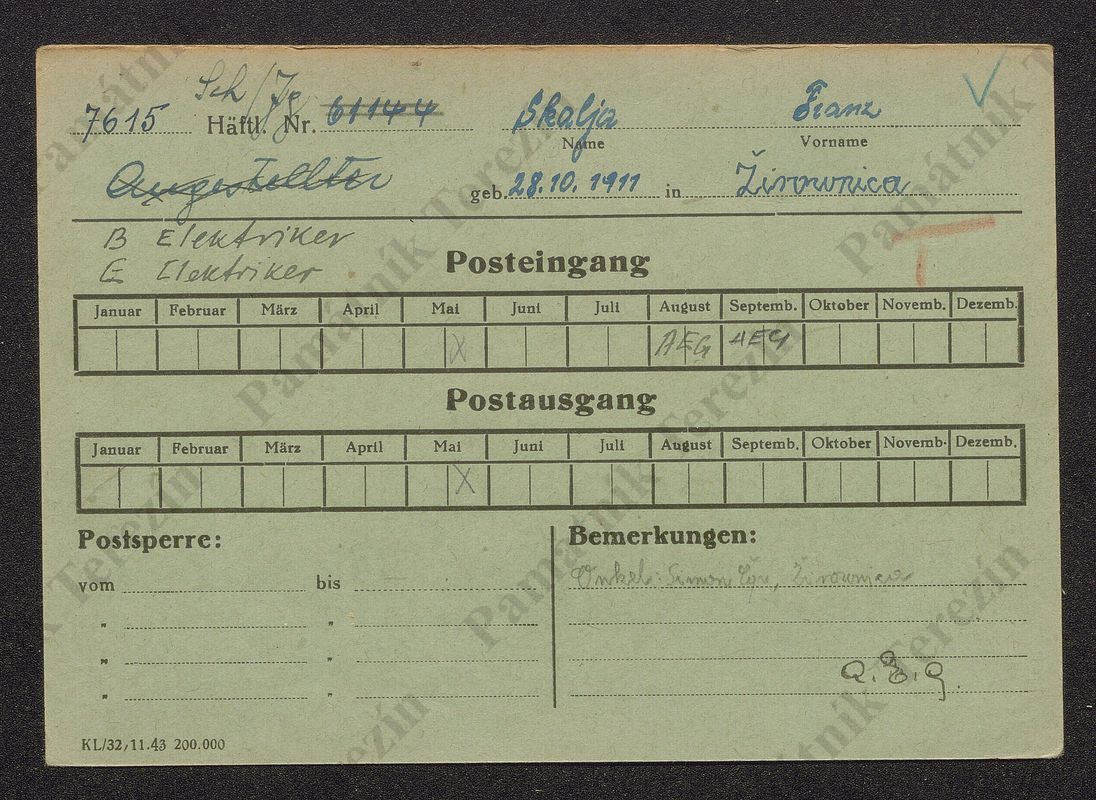 Sch/Jg
7615 Häftl. Nr. 61144 Skalja Franz
Name Vorname
Angestellter geb. 28.10.1911 in Žirownica
B Elektriker
E Elektriker
Posteingang
Januar Februar März April Mai Juni Juli August Septemb. Oktober Novemb. Dezemb.
X AEG AEG
Postausgang
Januar Februar März April Mai Juni Juli August Septemb. Oktober Novemb. Dezemb.
X
Postsperre: Bemerkungen:
vom bis Onkel: Simon, Žirownica
" "
" "
" "
A.E.G.
KL/32, 11.43 200.000
Památník Terezín